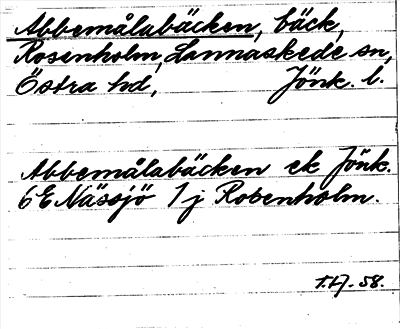 Abbemålabäcken, bäck,
Rosenholm, Lannaskede sn,
Östra hd, Jönk. l.
Abbemålabäcken ek Jönk.
6E Nässjö 1j Rosenholm.
58.